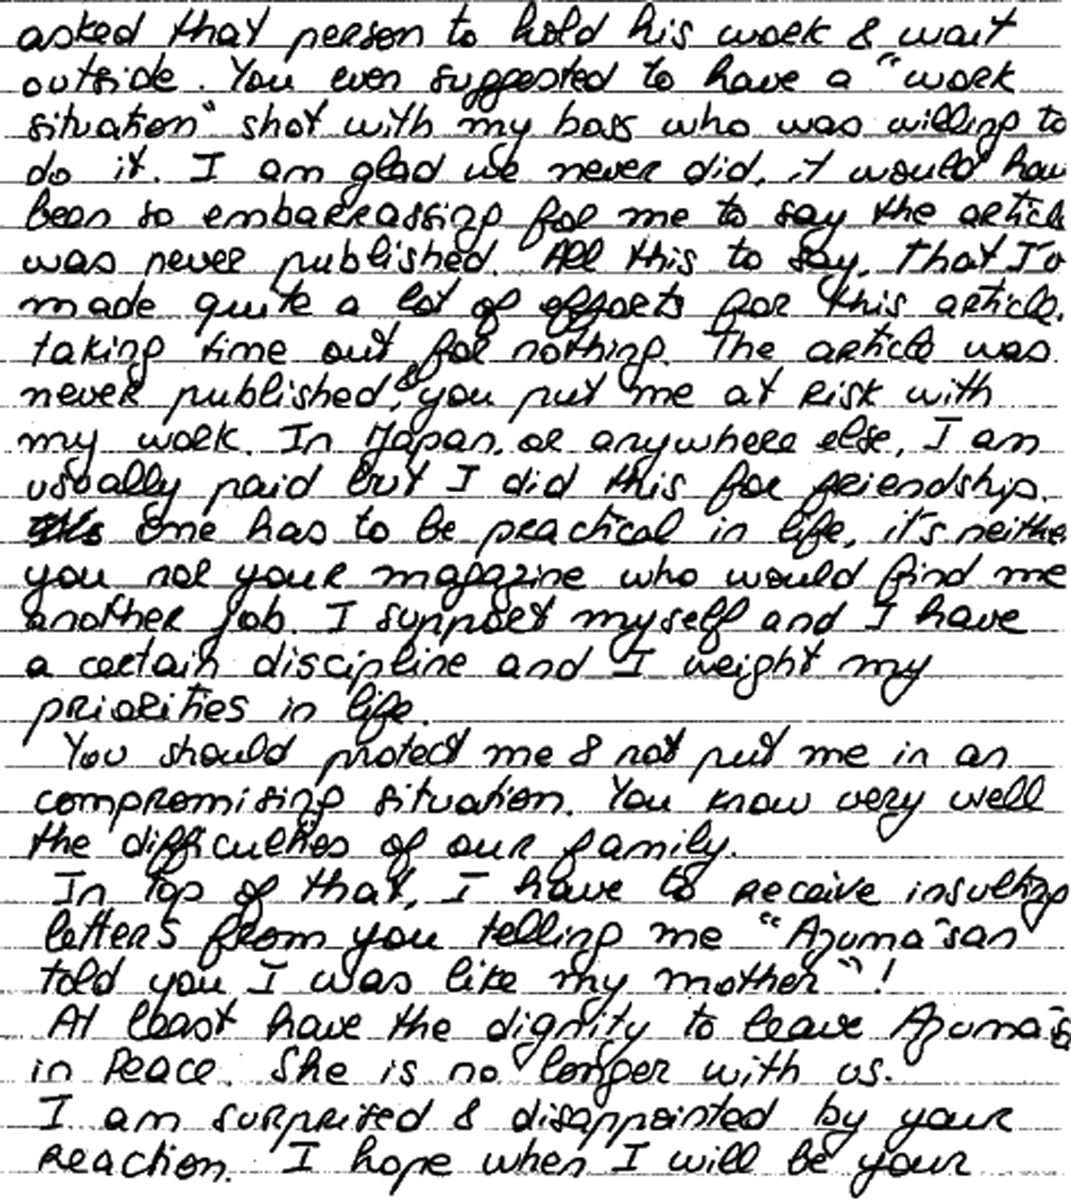 asked that person to hold his work & wait
outside. You even suggested to have a "work
situation" shot with my boss who was willing to
do it. I am glad we never did, it would hav
been so embarrassing for me to say the article
was never published. All this to say, that I
made quite a lot of efforts for this article,
taking time out for nothing. The article was
never published, & you put me at risk with
my work. In Japan, or anywhere else, I am
usually paid but I did this for friendship.
One has to be practical in life, it's neithe
you nor your magazine who would find me
another job. I support myself and I have
a certain discipline and I weight my
priorities in life.
You should protect me & not put me in an
compromising situation. You know very well
the difficulties of our family.
In top of that, I have to receive insulting
letters from you telling me "Azuma san
told you I was like my mother"!
At least have the dignity to leave Azuma
in Peace. She is no longer with us.
I am surprised & disappointed by your
reaction. I hope when I will be your